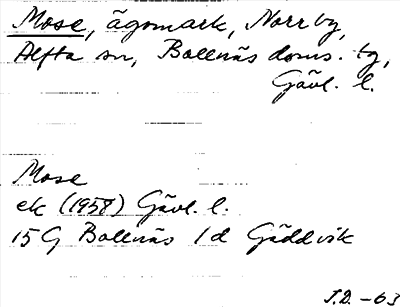 Mose, ägomark, Norrby,
Alfta sn, Bollnäs doms. tg,
Gävl. l.
Mose
ek (1958) Gävl. l.
15G Bollnäs 1d Gäddvik
J.D. -63